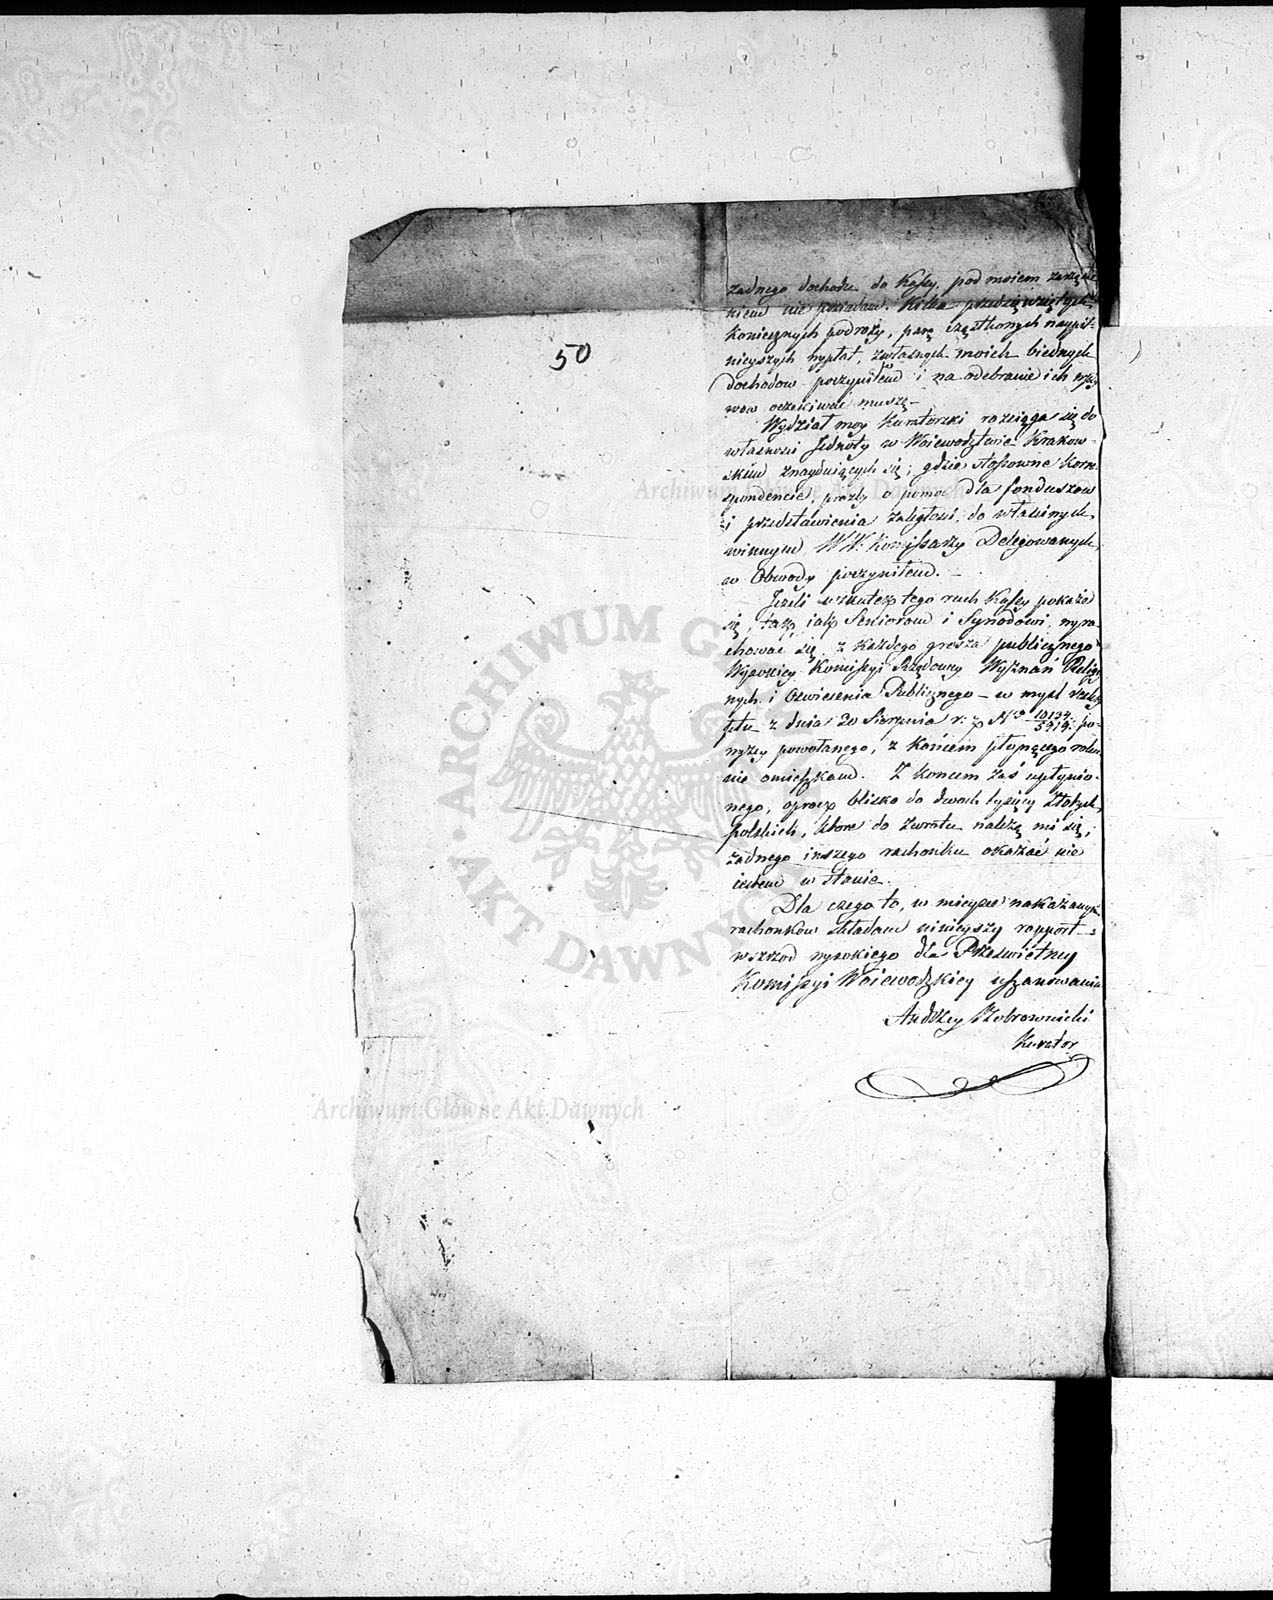 50
żadnego dochodu do Kassy, pod moiem zarzą
kiem nie posiadam. Kilka przedsięwziętych
koniecznych podroży, parę cząstkowych naypil-
nieyszych wypłat, zwłasnych moich biednych
dochodow poczyniłem i na odebranie ich
oczekiwać muszę –
Wydział moy Kuratorski rozciąga się do
własności Jednoty w Woiewodztwie Krakow-
skim znayduiących się; gdzie stosowne Korre-
spondencie, prozby o pomoc dla funduszow
i przedstawienia zaległosci, do własciwych
WW. Kommissarzy Delegowanych
w Obwody poczyniłem. –
Jeżeli wskutek tego ruch Kassy pokaże
się, tak iak Seniorom i Synodowi, wyra-
chować się z każdego grosza publicznego
Wysokiey Kommissyi Rządowey Wyznań Religiy
nych i Oswiecenia Publicznego – w mysl resk
ptu z dnia 20 Sierpnia r. z No 10134/5919. po-
wyżey powołanego, z końcem płynącego roku
nie omieszkam. Z koncem zaś upłynio-
nego, oprocz blisko do dwoch tysięcy Złotych
polskich, ktore do zwrotu należą mi się,
żadnego inszego rachonku okazać nie
iestem w stanie.
Dla czego to, w mieysce nakazanych
rachonkow składam ninieyszy rapport
wsrzod wysokiego dla Prześwietney
Kommissyi Woiewodzkiey uszanowania
Andrzey
Kurator
Archiwum Główne Akt Dawnych
ARCHIWUM GŁÓWNE AKT DAWNYCH
Archiwum Główne Akt Dawnych